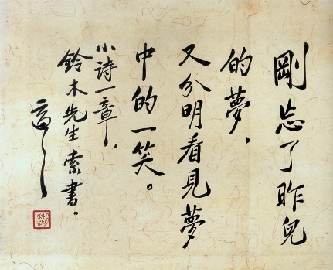 剛忘了昨兒
的夢，
又分明看見夢
中的一笑。
小詩一章，
鈴木先生索書．
適之